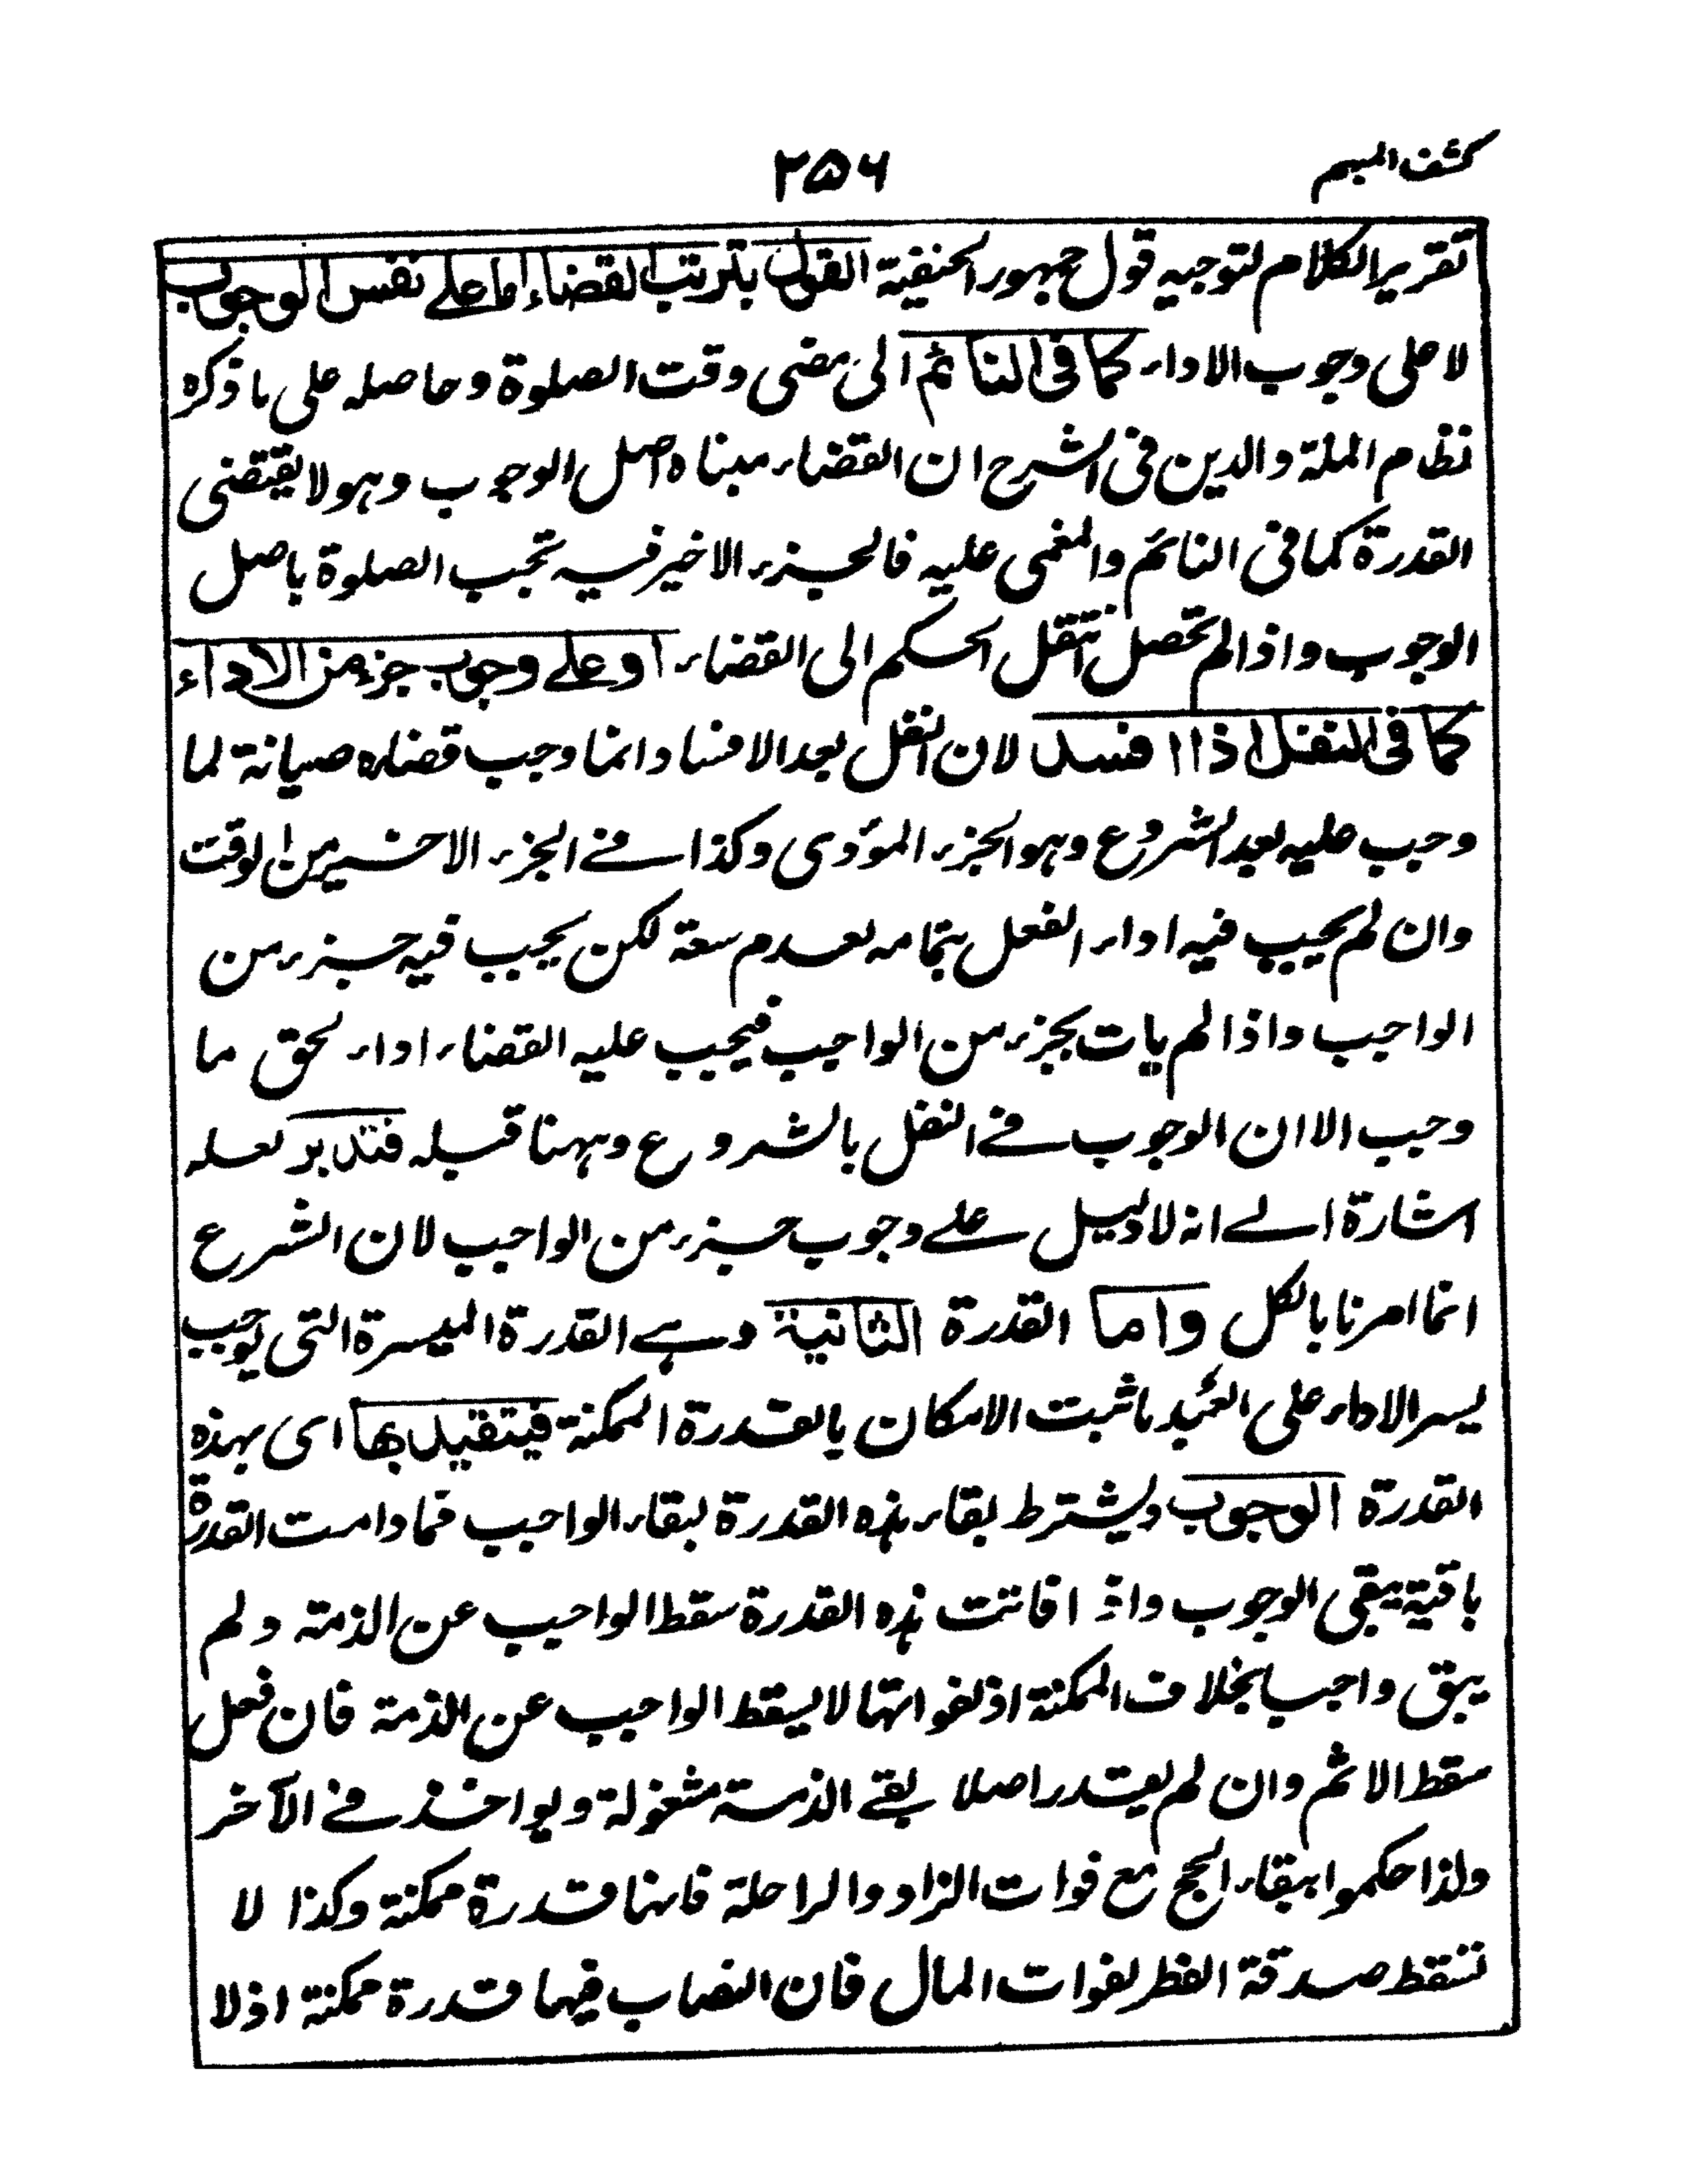 كشف المبهم
٢٥٦
تقرير الكلام لتوجيه قول جمهور الحنفية القول بترتب القضاء اما على نفس الوجوب
لا على وجوب الاداء كما فى النائم الى مضى وقت الصلوة وحاصله على ما ذكره
نظام الملة والدين فى الشرح ان القضاء مبناه اصل الوجوب وهو لا يقتضى
القدرة كما فى النائم والمغمى عليه فالجزء الاخير فيه تجب الصلوة باصل
الوجوب واذا لم تحصل انتقل الحكم الى القضاء او على وجوب جزء من الاداء
كما فى النفل اذا افسد لان النفل بعد الافساد انما وجب قضاءه صيانة لما
وجب عليه بعد الشروع وهو الجزء المؤدى وكذا فے الجزء الاخير من الوقت
وان لم يجب فيه اداء الفعل بتمامه لعدم سعة لكن يجب فيه جزء من
الواجب واذا لم يات بجزء من الواجب فيجب عليه القضاء اداء لحق ما
وجب الا ان الوجوب فے النفل بالشروع وههنا قبله فتدبر لعله
اشارة الے انه لا دليل علے وجوب جزء من الواجب لان الشرع
انما امرنا بالكل واما القدرة الثانية وهے القدرة الميسرة التى يوجب
يسر الاداء على العبد ما ثبت الامكان بالقدرة الممكنة فيتقيد بها اى بهذه
القدرة الوجوب ويشترط بقاء هذه القدرة لبقاء الواجب فما دامت القدرة
باقية يبقى الوجوب واذا فاتت هذه القدرة سقط الواجب عن الذمة ولم
يبق واجبا بخلاف الممكنة اذ لفواتها لا يسقط الواجب عن الذمة فان فعل
سقط الاثم وان لم يقدر اصلا بقے الذمة مشغولة ويواخذ فے الآخر
ولذا حكموا ببقاء الحج مع فوات الزاد والراحلة فانها قدرة ممكنة وكذا لا
تسقط صدقة الفطر لفوات المال فان النصاب فيها قدرة ممكنة اذ لا